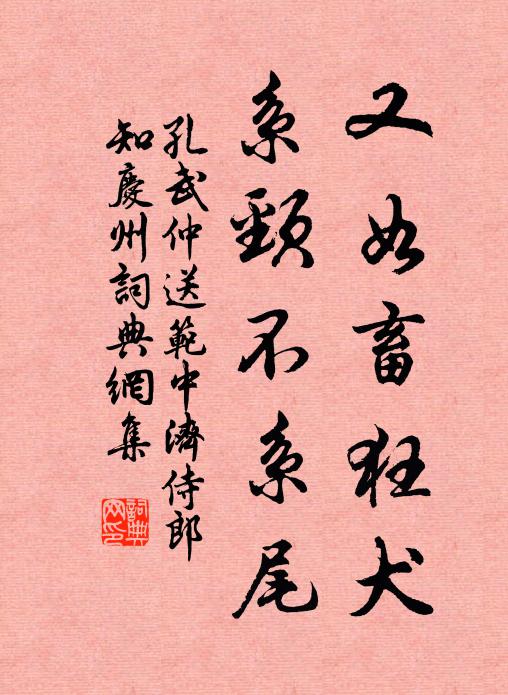 又如畜狂犬
系頸不系尾
孔武仲送範中濟侍郎
知慶州詞典網集
詞典
网印